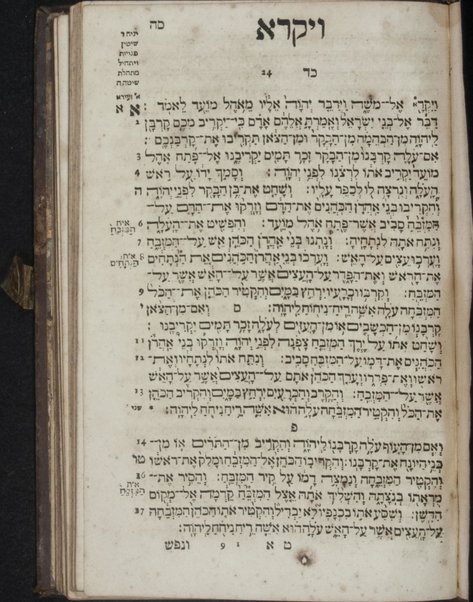 ויקרא
כה
כד 24
ויקרא אל־משה וידבר יהוה אליו מאהל מועד לאמר׃
דבר אל־בני ישראל ואמרת אלהם אדם כי־יקריב מכם קרבן
ליהוה מן־הבהמה מן־הבקר ומן־הצאן תקריבו את־קרבנכם׃
אם־עלה קרבנו מן־הבקר זכר תמים יקריבנו אל־פתח אהל
מועד יקריב אתו לרצנו לפני יהוה׃ וסמך ידו על ראש
העלה ונרצה לו לכפר עליו׃ ושחט את־בן הבקר לפני יהוה
והקריבו בני אהרן הכהנים את־הדם וזרקו את־הדם על־
המזבח סביב אשר־פתח אהל מועד׃ והפשיט את־העלה
ונתח אתה לנתחיה׃ ונתנו בני אהרן הכהן אש על־המזבח
וערכו עצים על־האש׃ וערכו בני אהרן הכהנים את הנתחים
את־הראש ואת־הפדר על־העצים אשר על־האש אשר על־
המזבח׃ וקרבו וכרעיו ירחץ במים והקטיר הכהן את־הכל
המזבחה עלה אשה ריח־ניחוח ליהוה׃ ס ואם־מן־הצאן
קרבנו מן־הכשבים או מן־העזים לעלה זכר תמים יקריבנו׃
ושחט אתו על ירך המזבח צפנה לפני יהוה וזרקו בני אהרן
הכהנים את־דמו על־המזבח סביב׃ ונתח אתו לנתחיו ואת־
ראשו ואת־פדרו וערך הכהן אתם על־העצים אשר על־האש
אשר על־המזבח׃ והקרב והכרעים ירחץ במים והקריב הכהן
את־הכל והקטיר המזבחה עלה הוא אשה ריח ניחח ליהוה׃
פ
ואם מן־העוף עלה קרבנו ליהוה והקריב מן־התרים או מן־
בני היונה את־קרבנו׃ והקריבו הכהן אל־המזבח ומלק את־ראשו
והקטיר המזבחה ונמצה דמו על קיר המזבח׃ והסיר את־
מראתו בנצתה והשליך אתה אצל המזבח קדמה אל־מקום
הדשן׃ ושסע אתו בכנפיו לא יבדיל והקטיר אתו הכהן המזבחה
על־העצים אשר על־האש עלה הוא אשה ריח ניחח ליהוה׃
ונפש